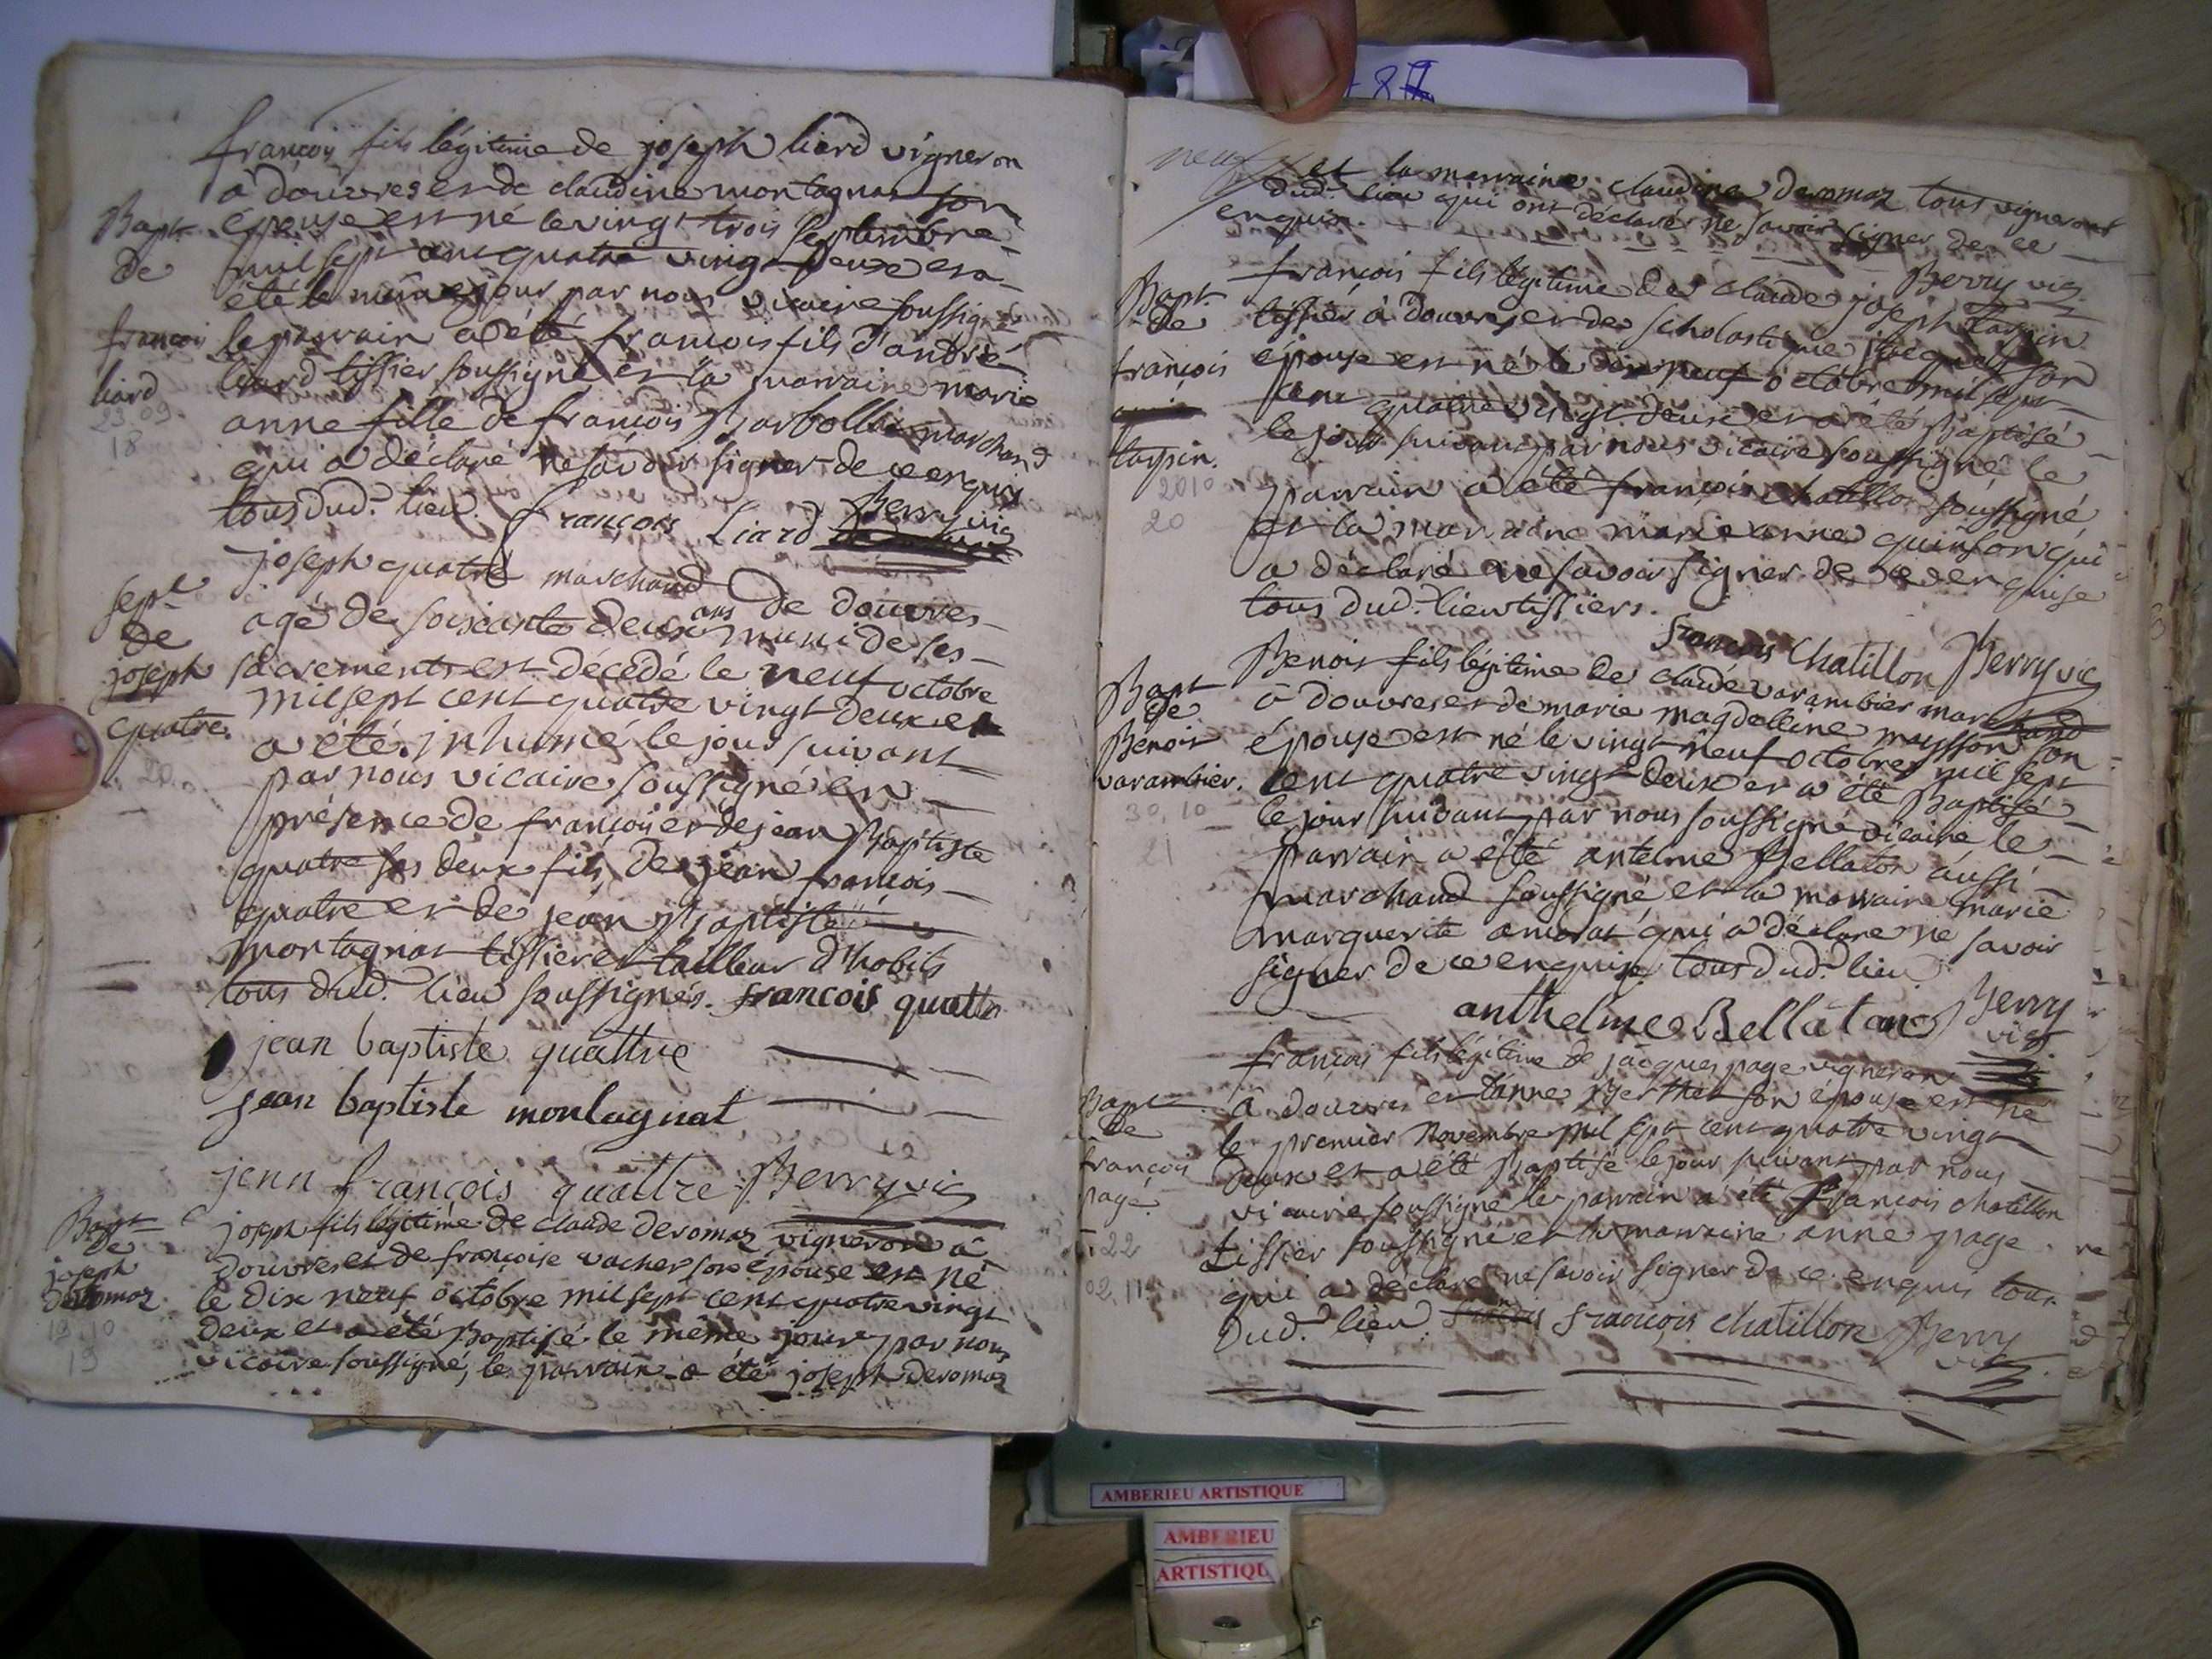 françois fils légitime de joseph liard vigneron
à douvres et de claudine montagnat son
épouse est né le vingt trois septembre
mil sept cent quatre vingt deux et a
été le même jour par nous vicaire soussigné
le parrain a été françois fils d'andré
liard tissier soussigné et la marraine marie
anne fille de françois marchand
qui a déclaré ne savoir signer de ce enquis
tous dud. lieu. françois Liard Berry vic
Bapt
de
françois
liard
23 09
18
joseph quatre marchand de douvres
agé de soixante deux ans muni de ses
sacrements est décédé le neuf octobre
mil sept cent quatre vingt deux et
a été inhumé le jour suivant
par nous vicaire soussigné en
présence de françois et de jean Baptiste
quatre ses deux fils, de jean françois
quatre et de jean Baptiste
montagnat tissier et tailleur d'habits
tous dud. lieu soussignés. francois quattre
jean baptiste quattre
jean baptiste montagnat
jenn françois quattre Berry vic
sept
de
joseph
quatre.
joseph fils légitime de claude deromaz vigneron à
douvres et de françoise vacher son épouse est né
le dix neuf octobre mil sept cent quatre vingt
deux et a été Baptisé le même jour par nous
vicaire soussigné, le parrain a été joseph deromaz
Bapt
de
joseph
deromaz
19 10
19
et la marraine claudine deromaz tous vignerons
dud. lieu qui ont déclaré ne savoir signer de ce
enquis.
Berry vic
françois fils légitime de claude joseph tarpin
tissier à douvres et de scholastique son
épouse est né le dix neuf octobre mil sept
cent quatre vingt deux et a été Baptisé
le jour suivant par nous vicaire soussigné le
parrain a été françois chatillon soussigné
et la marraine marie anne quinson qui
a déclaré ne savoir signer de ce enquise
tous dud. lieu tissiers.
francois Chatillon Berry vic
Bapt
de
françois
tarpin.
20 10
20
Benoit fils légitime de claude varambier marchand
à douvres et de marie magdelline son
épouse est né le vingt neuf octobre mil sept
cent quatre vingt deux et a été Baptisé
le jour suivant par nous soussigné vicaire le
parrain a été antelme Bellaton aussi
marchand soussigné et la marraine marie
marguerite qui a déclaré ne savoir
signer de ce enquise tous dud. lieu
anthelme Bellaton Berry
vic
Bapt
de
Benoit
varambier.
30, 10
21
françois fils légitime de jacques page vigneron
à douvres et d'anne son épouse est né
le premier Novembre mil sept cent quatre vingt
deux et a été Baptisé le jour suivant par nous
vicaire soussigné le parrain a été françois chatillon
tissier soussigné et la marraine anne page
qui a déclaré ne savoir signer de ce enquis tous
dud. lieu françois chatillon Berry
vic
Bapt
de
françois
page
22
02, 11
AMBERIEU ARTISTIQUE
AMBERIEU
ARTISTIQU